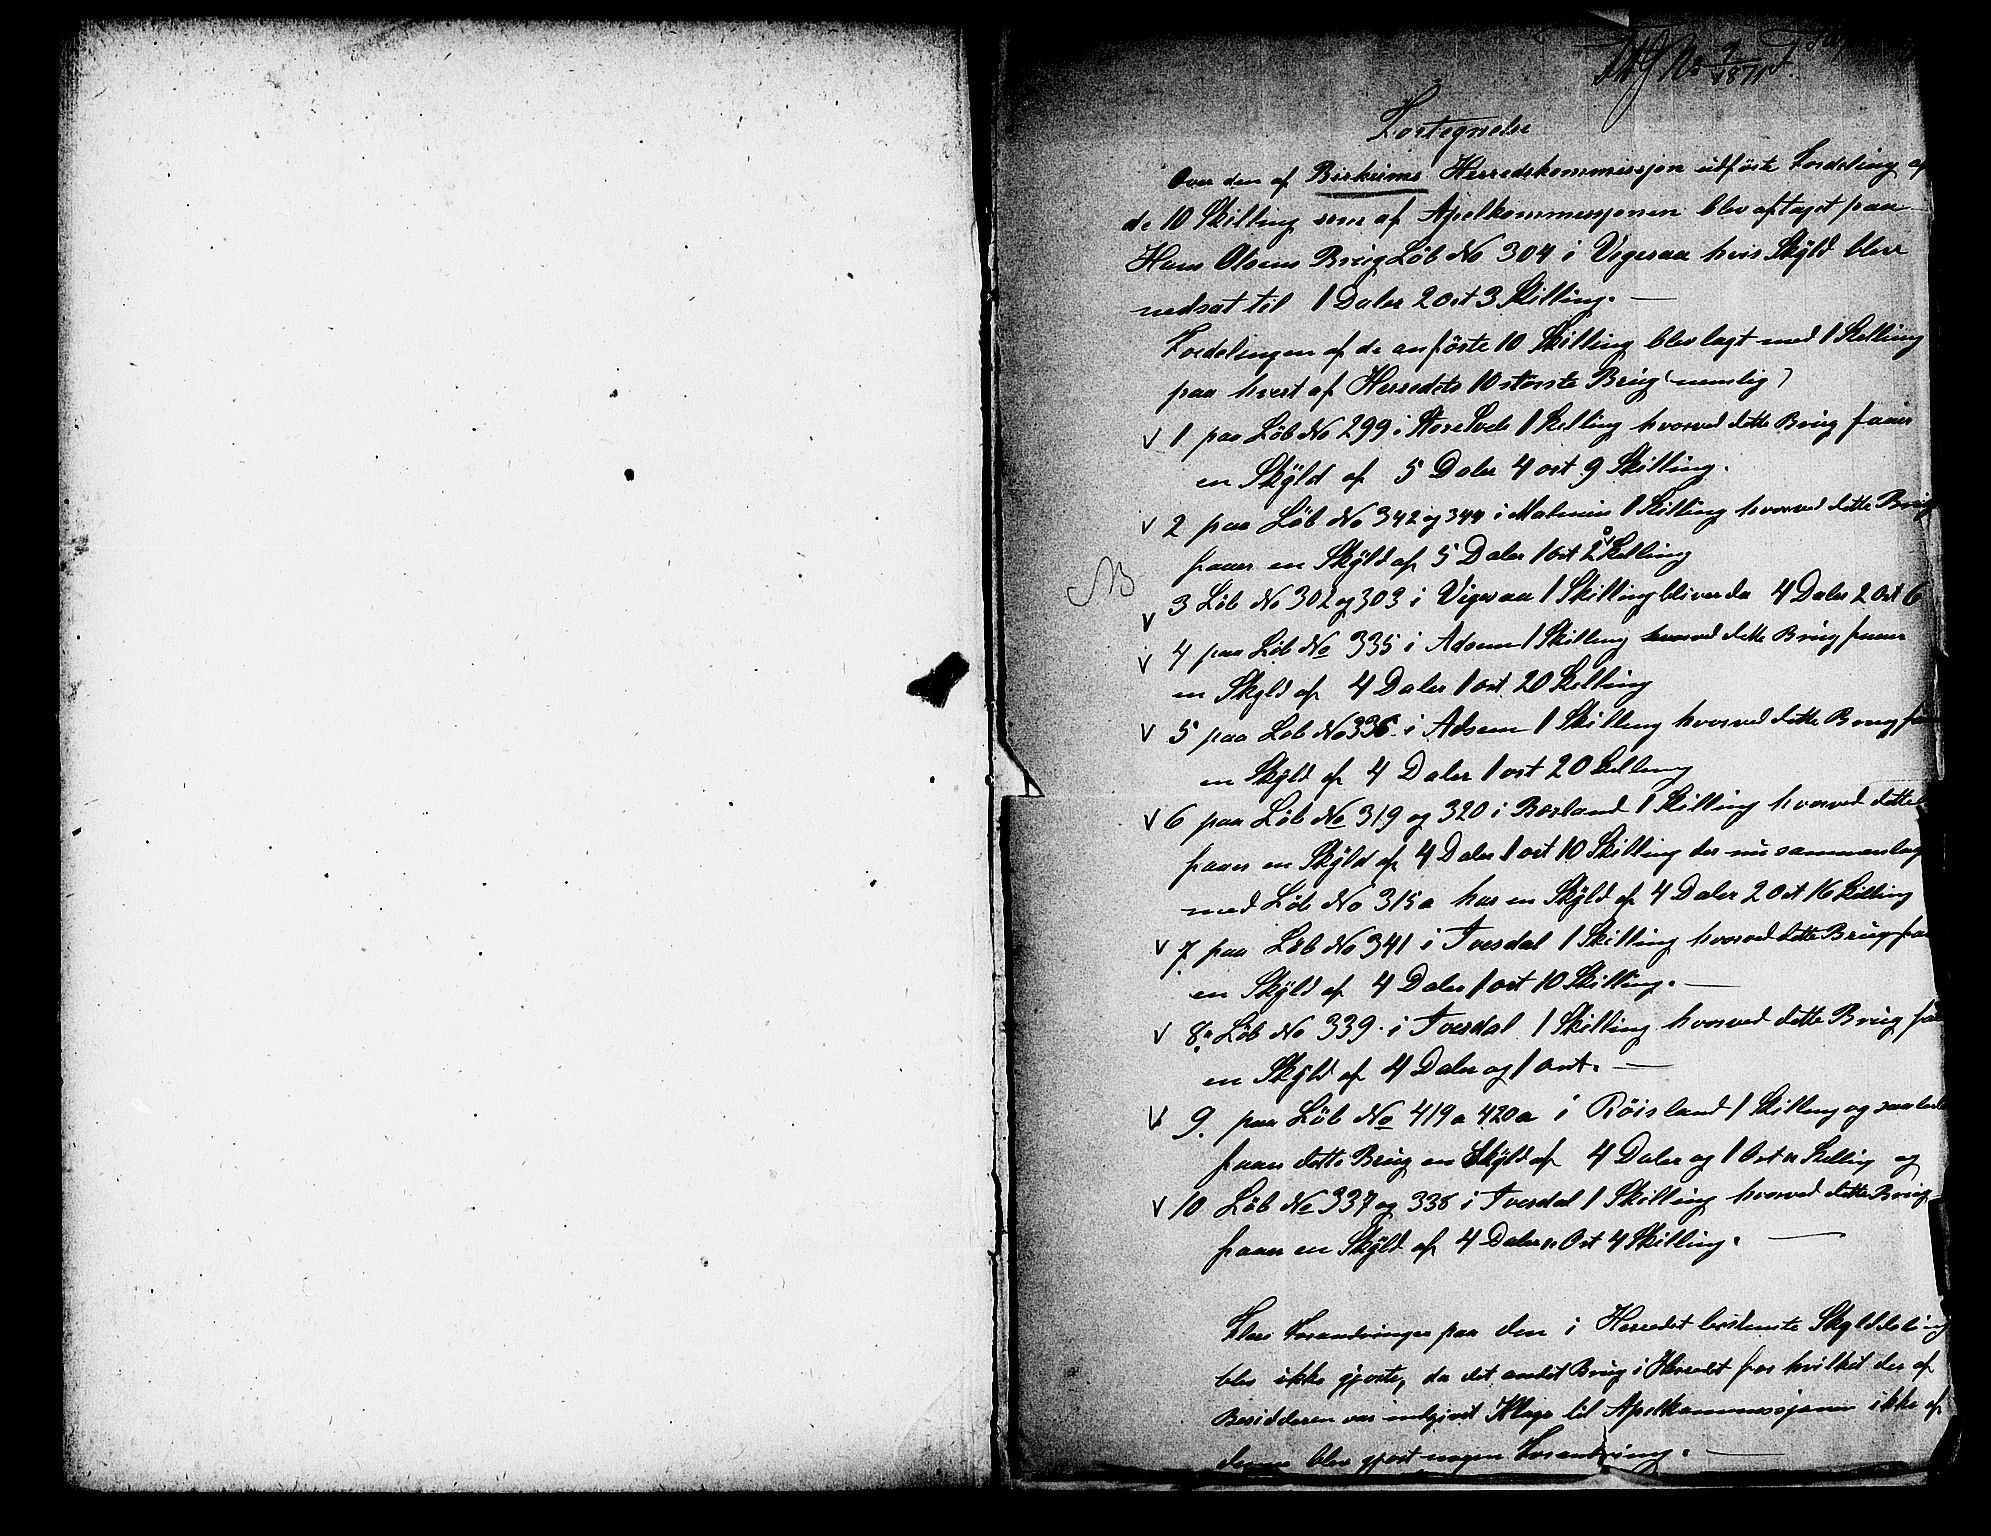 Fortegnelse
Over den af Birkrims Herredskommissjon udförte Fordeling af
de 10 Skilling som af Apelkommissjonen blev aftaget paa
Hans Olsens Brüg Löb No 304 i Vigesaa hvis Skÿld blev
nedsat til 1 Daler 2 Ort 3 Skilling. —
Fordelingen af de anförte 10 Skilling blev lagt med 1 Skilling
paa hvert af Herredets 10 störste Brüg (nemlig)
v 1 paa Löb No 299 i Store Svele 1 Skilling hvorved dette Brüg faaer
en Skÿld af 5 Daler 4 ort 9 Skilling.
v 2 paa Löb No 342 og 344 i Malmin 1 Skilling hvorved dette Brüg
faaer en Skÿld af 5 Daler 1 ort 2 Skilling
NB
v 3 Löb No 302 og 303 i Vigesaa 1 Skilling bliver da 4 Daler 2 Ort 6
v 4 paa Löb No 335 i Adsem 1 Skilling hvorved dette Brüg faaer
en Skyld af 4 Daler 1 ort 20 Skilling
v 5 paa Löb No 336 i Adsem 1 Skilling hvorved dette Brug
en Skÿld af 4 Daler 1 ort 20 Skilling
v 6 paa Löb No 319 og 320 i Birkeland 1 Skilling hvorved dette
faaer en Skÿld af 4 Daler 1 ort 10 Skilling der nu sammenlagt
med Löb No 315a har en Skÿld af 4 Daler 2 Ort 16 Skilling
v 7. paa Löb No 341 i Tvesdal 1 Skilling hvorved dette Brüg
en Skÿld af 4 Daler 1 ort 10 Skilling. —
v 8. Löb No 339. i Tvesdal 1 Skilling hvorved dette Brüg
en Skÿld af 4 Daler og 1 ort. —
v 9. paa Löb No 419a 420a i Röisland 1 Skilling og saaledes
faaer dette Brüg en Skÿld af 4 Daler og 1 Ort " Skillig og
v 10 Löb No 337 og 338 i Tvesdal 1 Skilling hvorved dette Brüg
faaer en Skÿld af 4 Daler " Ort 4 Skilling. —
Flere Forandringer paa den i Herredet bestemte Skylddeling
blev ikke gjorte, da det andet Brüg i Herredet for hvilket der af
Besidderen var indgivet Klage til Apelkommissjonen ikke af
denne blev gjort nogen Forandring. —